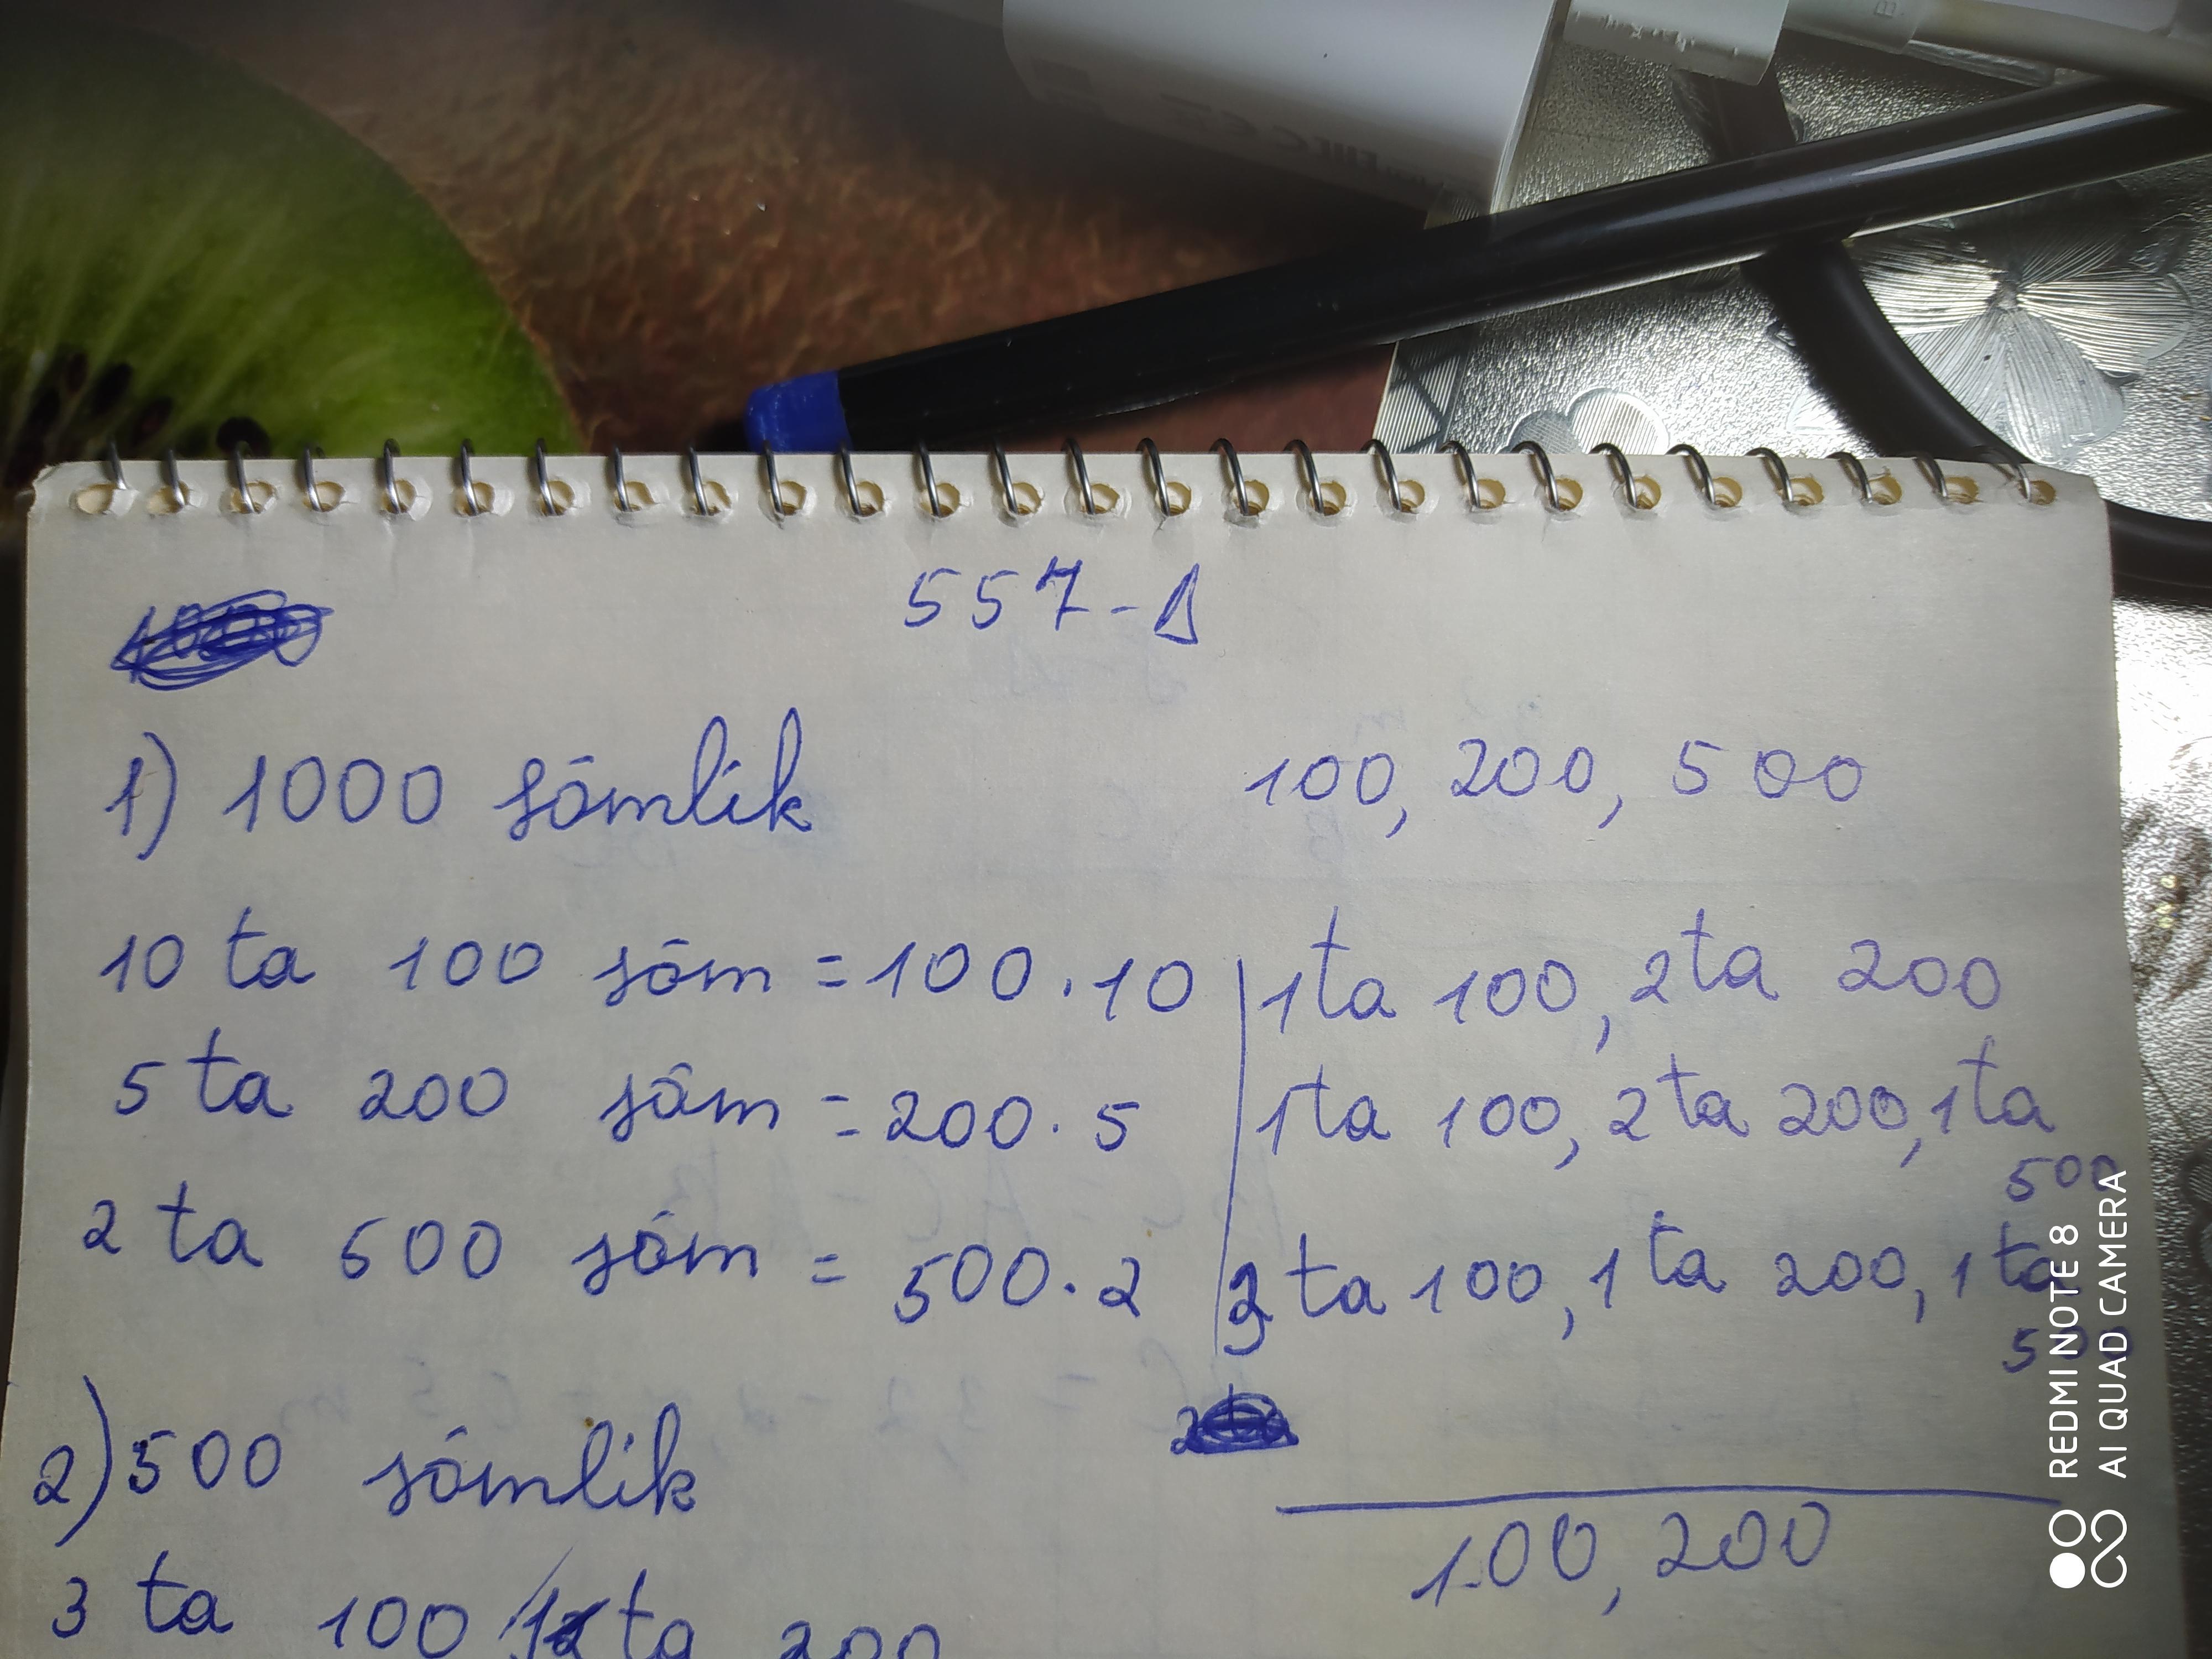 557-Δ
1) 1000 sómlik 100, 200, 500
10 ta 100 sóm = 100 . 10 1 ta 100, 2 ta 200
5 ta 200 sóm = 200 . 5 1 ta 100, 2 ta 200, 1 ta
500
2 ta 500 sóm = 500 . 2 3 ta 100, 1 ta 200, 1 ta
500
2) 500 sómlik
100, 200
3 ta 100 1 ta 200
REDMI NOTE 8
AI QUAD CAMERA